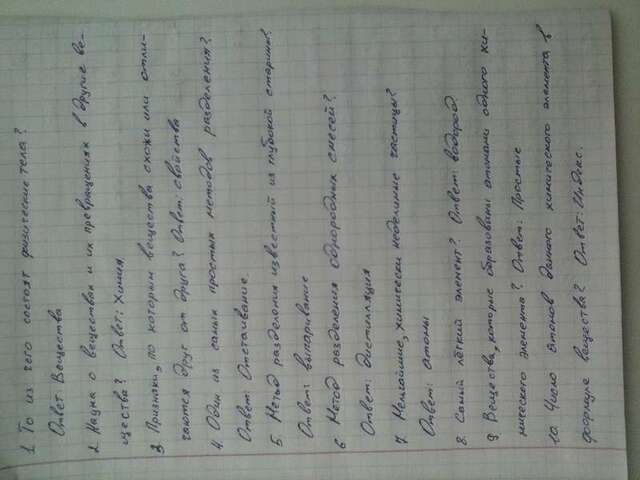 1. То из чего состоят физические тела?
Ответ: Вещества
2. Наука о веществах и их превращениях в другие ве-
щества? Ответ: Химия
3. Признаки, по которым вещества схожи или отли-
чаются друг от друга? Ответ: свойства
4. Один из самых простых методов разделения?
Ответ: Отстаивание
5. Метод разделения известный из глубокой старины?
Ответ: выпаривание
6 Метод разделения однородных смесей?
Ответ: дистилляция
7. Мельчайшие, химически неделимые частицы?
Ответ: атомы
8. Самый лёгкий элемент? Ответ: водород
9 Вещества, которые образованы атомами одного хи-
мического элемента? Ответ: Простые
10. Число атомов данного химического элемента в
формуле вещества? Ответ: Индекс.